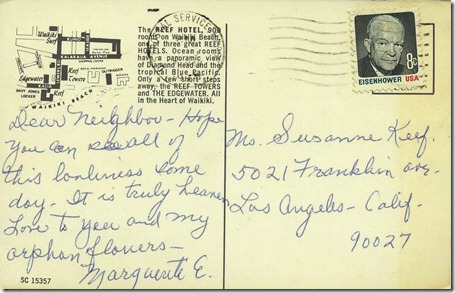 Waikiki
Surf
KALAKAUA AVENUE
SHOPPING CENTER
Edgewater
Reef
Towers
OUTRIGGER
DAVY JONES
LOCKER
REEF
WAIKIKI BEACH
The REEF HOTEL, 900
rooms on Waikiki Beach,
one of three great REEF
HOTELS. Ocean rooms
have a panoramic view
of Diamond Head and the
tropical Blue Pacific.
Only a few short steps
away, the REEF TOWERS
and THE EDGEWATER. All
in the Heart of Waikiki.
AL SERVICE
8¢
EISENHOWER USA
Dear Neighbor - Hope
you can see all of
this lovliness some
day. It is truly heaven
Love to you and my
orphan flowers -
Marguerite E.
SC 15357
Ms. Susanne Keef.
5021 Franklin ave.
Los Angeles - Calif.
90027